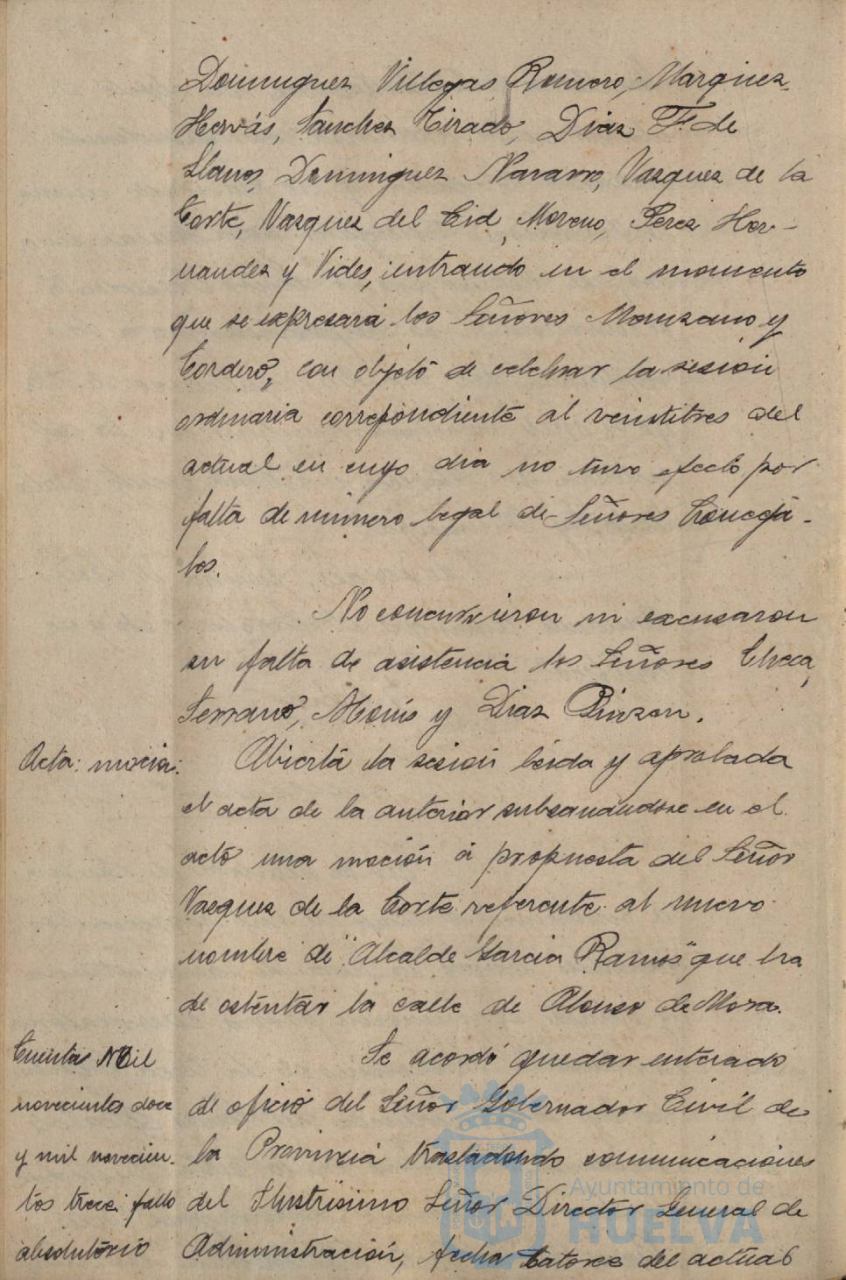 Dominguez Villegas Romero, Marquez
Hervás, Sanchez Tirado, Diaz F. de
Llanos, Dominguez Navarro, Vazquez de la
Corte, Vazquez del Cid, Moreno, Perez Her-
nandez y Vides, entrando en el momento
que se expresará los Señores Manzano y
Cordero, con objetó de celebrar la sesion
ordinaria correspondiente al veintitres del
actual en cuyo dia no tuvo efecto por
falta de número legal de Señores Conceja-
les.
No concurrieron ni excusaron
su falta de asistencia los Señores Checa,
Serrano, Monís y Diaz Pinzon.
Acta: moción: Abierta la sesión leida y aprobada
el acta de la anterior subsanandose en el
actó una moción á propuesta del Señor
Vazquez de la Corte referente al nuevo
nombre de "Alcalde Garcia Ramos" que ha
de ostentar la calle de Alonso de Mora.
Cuentas Mil
novecientos doce
y mil novecien-
tos trece fallo
absolutorio
Se acordó quedar enterado
de oficio del Señor Gobernador Civil de
la Provincia trasladando comunicaciones
del Ilustrisimo Señor Director General de
Administración, fecha catorce del actual
Ayuntamiento de
HUELVA